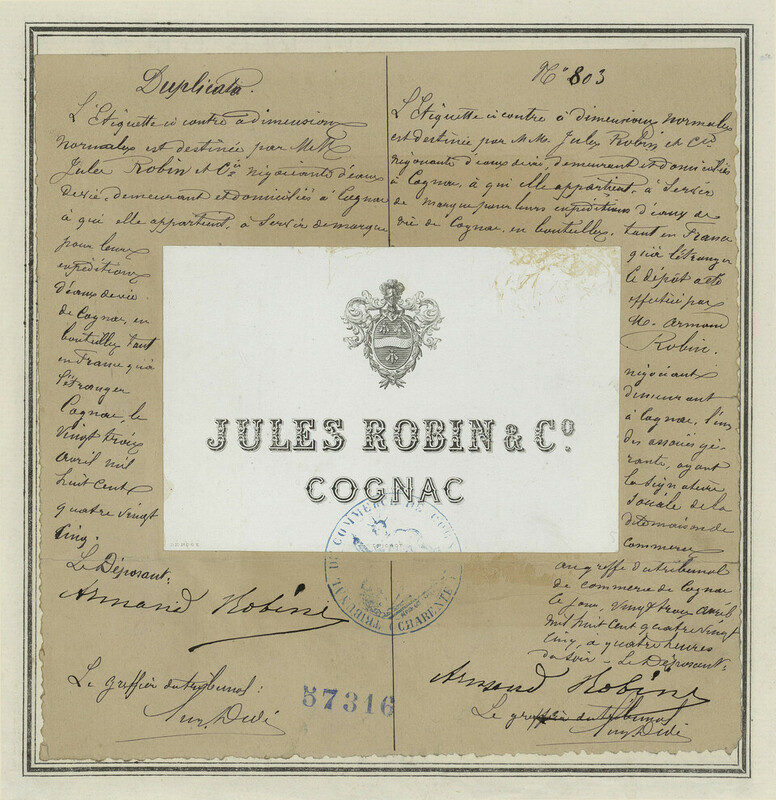 Duplicata.
L'Etiquette ci contre à dimensions
normales est destinée par MM
Jules Robin et Cie négociants d'eaux
de vie, demeurant et domiciliés à Cognac
à qui elle appartient, à servir de marque
pour leurs
expéditions
d'eaux de vie
de Cognac, en
bouteilles tant
en France qu'à
l'étranger
Cognac, le
vingt trois
avril mil
huit cent
quatre vingt
cinq.
Le Déposant:
Armand Robin
Le greffier du tribunal:
57316
No 803
L'Etiquette ci contre à dimensions normales
est destinée par M.M. Jules Robin et Cie
négociants d'eaux de vie demeurant et domiciliés
à Cognac, à qui elle appartient, à servir
de marque pour leurs expéditions d'eaux de
vie de Cognac, en bouteilles, tant en France
qu'à l'étranger
Ce dépôt a été
effectué par
M. Armand
Robin.
négociant
demeurant
à Cognac, l'un
des associés gé-
rants, ayant
la signature
sociale de la
dite maison de
commerce
au greffe du tribunal
de commerce de Cognac
ce jour, vingt trois avril
mil huit cent quatre vingt
cinq, à quatre heures
du soir - Le Déposant:
Armand Robin
Le greffier du tribunal
JULES ROBIN & Co.
COGNAC
TRIBUNAL DE COMMERCE DE COGNAC
CHARENTE